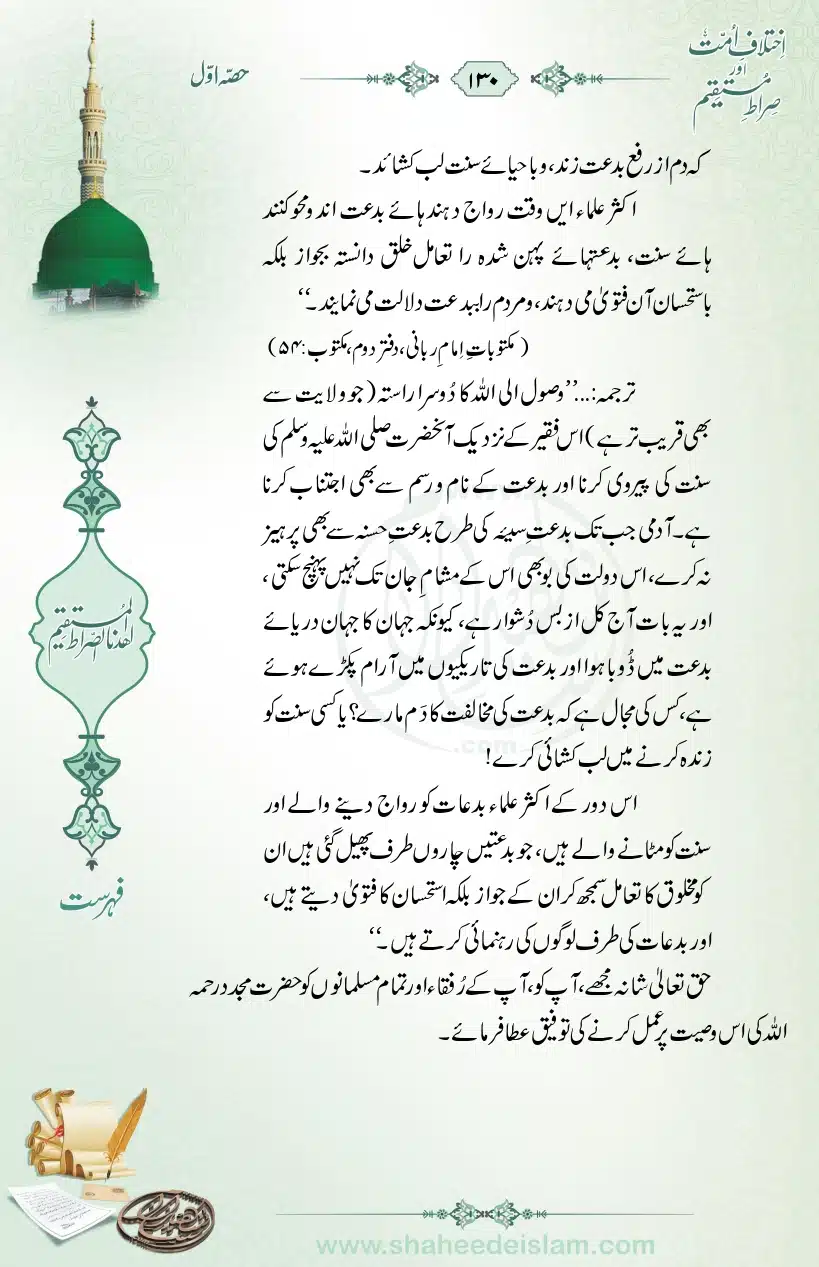 اِختلافِ اُمّت
اور
صراطِ مُستقیم
۱۳۰
حصّہ اوّل
کہ دم از رفع بدعت زند، وباحیائے سنت لب کشائد۔
اکثر علماء ایں وقت رواج دہند ہائے بدعت اند ومحو کنند
ہائے سنت، بدعتہائے پہن شدہ را تعامل خلق دانستہ بجواز بلکہ
باستحسان آن فتویٰ می دہند، ومردم را ببدعت دلالت می نمایند۔‘‘
(مکتوباتِ اِمامِ ربانی، دفتر دوم، مکتوب:۵۴)
ترجمہ:...’’وصول الی اللہ کا دُوسرا راستہ (جو ولایت سے
بھی قریب تر ہے) اس فقیر کے نزدیک آنحضرت صلی اللہ علیہ وسلم کی
سنت کی پیروی کرنا اور بدعت کے نام و رسم سے بھی اجتناب کرنا
ہے۔ آدمی جب تک بدعتِ سیئہ کی طرح بدعتِ حسنہ سے بھی پرہیز
نہ کرے، اس دولت کی بو بھی اس کے مشامِ جان تک نہیں پہنچ سکتی،
اور یہ بات آج کل ازبس دُشوار ہے، کیونکہ جہان کا جہان دریائے
بدعت میں ڈُوبا ہوا اور بدعت کی تاریکیوں میں آرام پکڑے ہوئے
ہے، کس کی مجال ہے کہ بدعت کی مخالفت کا دَم مارے؟ یا کسی سنت کو
زندہ کرنے میں لب کشائی کرے!
اس دور کے اکثر علماء بدعات کو رواج دینے والے اور
سنت کو مٹانے والے ہیں، جو بدعتیں چاروں طرف پھیل گئی ہیں ان
کو مخلوق کا تعامل سمجھ کر ان کے جواز بلکہ استحسان کا فتویٰ دیتے ہیں،
اور بدعات کی طرف لوگوں کی رہنمائی کرتے ہیں۔‘‘
حق تعالیٰ شانہ مجھے، آپ کو، آپ کے رُفقاء اور تمام مسلمانوں کو حضرت مجدد رحمہ
اللہ کی اس وصیت پر عمل کرنے کی توفیق عطا فرمائے۔
اھدنا الصّراط المُستقیم
فہرست
.com
www.shaheedeislam.com